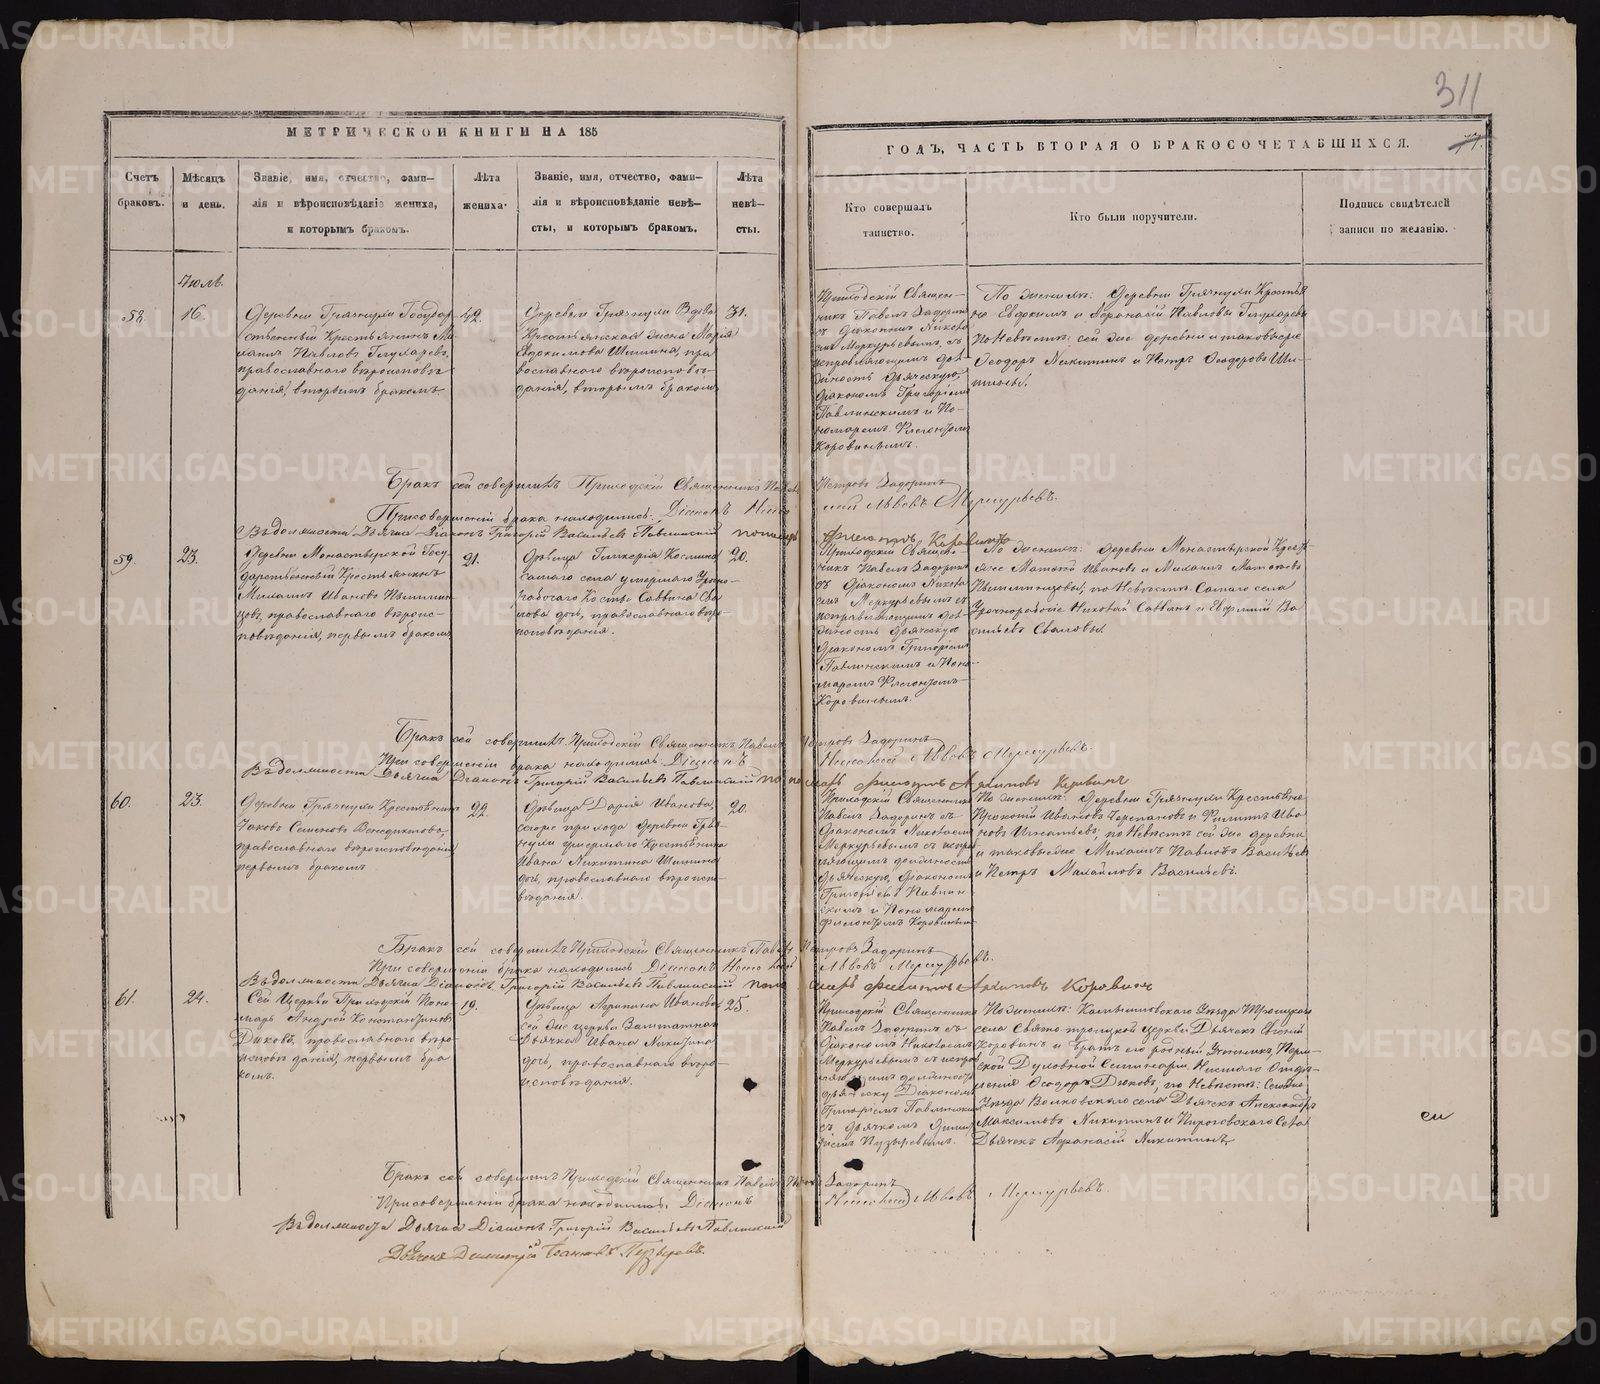 311
МЕТРИЧЕСКОЙ КНИГИ НА 185
ГОДЪ, ЧАСТЬ ВТОРАЯ О БРАКОСОЧЕТАВШИХСЯ.
77.
Счетъ
браковъ.
Мѣсяцъ
и день.
Званіе, имя, отчество, фами-
лія и вѣроисповѣданіе жениха,
и которымъ бракомъ.
Лѣта
жениха.
Званіе, имя, отчество, фами-
лія и вѣроисповѣданіе невѣ-
сты, и которымъ бракомъ.
Лѣта
невѣ-
сты.
Кто совершалъ
таинство.
Кто были поручители.
Подпись свидѣтелей
записи по желанію.
58.
16.
Деревни Грязнухи Государ
ственный Крестьянинъ Ми
хаилъ Павловъ Глухаревъ,
православнаго вѣроисповѣ
данія, вторымъ бракомъ
42.
Деревни Грязнухи Вдова
Крестьянская жена Марія
Евдокимова Шишина, пра
вославнаго вѣроисповѣ-
данія, вторымъ бракомъ
31.
Приходскій Священ-
никъ Павелъ Задорин
съ Діакономъ Никола
емъ Меркурьевымъ, съ
исправляющимъ дол
жность дьяческую,
діакономъ Григоріемъ
Павлинскимъ и По-
номаремъ Флегонтомъ
Коровинымъ.
По женихѣ: Деревни Грязнухи Крестья
не Евдокимъ и Афанасій Павловы Глухаревы
по Невѣстѣ: сей же деревни и таковые же
Ѳеодоръ Никитинъ и Петръ Ѳеодоровъ Ши-
шины.
Бракъ сей совершилъ Приходскій Священникъ Павелъ Петровъ Задоринъ
При совершеніи брака находились: Діаконъ Николай Львовъ Меркурьевъ.
Въ должности Дьячка Діаконъ Григорій Васильевъ Павлинскій
59.
23.
Деревни Монастырской Госу-
дарственный Крестьянинъ
Михаилъ Ивановъ Пьшмин
цовъ, православнаго вѣроис-
повѣданія, первымъ бракомъ
21.
Дѣвица Гликерія Косьмина
самаго села умершаго Уроч-
норабочаго Косьмы Саввина
дочь, православнаго вѣро-
исповѣданія.
20.
Приходскій Священ-
никъ Павелъ Задоринъ
съ Діакономъ Никола
емъ Меркурьевымъ съ
исправляющимъ дол
жность дьяческую
діакономъ Григоріемъ
Павлинскимъ и Поно-
маремъ Флегонтомъ
Коровинымъ.
По женихѣ: деревни Монастырской Кресть
яне Матвѣй Ивановъ и Михаилъ Матвѣевъ
по Невѣстѣ: Самаго села
Урочнорабочіе Николай Саввинъ и Ефимій Ва
сильевъ
Бракъ сей совершилъ Приходскій Священникъ Павелъ Петровъ Задоринъ
При совершеніи брака находились: Діаконъ Николай Львовъ Меркурьевъ.
Въ должности Дьячка Діаконъ Григорій Васильевъ Павлинскій пономарь Флегонтъ Архиповъ Коровинъ
60.
23.
Деревни Грязнухи Крестьянинъ
Іаковъ Семеновъ Венедиктовъ,
православнаго вѣроисповѣданія
первымъ бракомъ
22.
Дѣвица Дарія Иванова,
сего прихода деревни Гряз
нухи умершаго Крестьянина
Ивана Никитина Шишина
дочь, православнаго вѣроиспо
вѣданія.
20.
Приходскій Священникъ
Павелъ Задоринъ съ
діакономъ Николаемъ
Меркурьевымъ съ испра
вляющимъ должность
дьяческую, діакономъ
Григорьемъ Павлин
скимъ и Пономаремъ
Флегонтомъ Коровинымъ
По женихѣ: Деревни Грязнухи Крестьяне
Прокопій Ивановъ Черепановъ и Филиппъ Ива
новъ Игнатьевъ, по Невѣстѣ сей же деревни
и таковые же Михаилъ Павловъ Васильевъ
и Петръ Михайловъ Васильевъ.
Бракъ сей совершилъ Приходскій Священникъ Павелъ Петровъ Задоринъ
При совершеніи брака находились Діаконъ Николай Львовъ Меркурьевъ.
Въ должности Дьячка Діаконъ Григорій Васильевъ Павлинскій пономарь Флегонтъ Архиповъ Коровинъ
61.
24.
Сей Церкви Приходскій Поно-
марь Андрей Константиновъ
Дьковъ, православнаго вѣро
исповѣданія, первымъ бра
комъ.
19.
Дѣвица Агрипина Иванова
сей же церкви Заштатнаго
Дьячка Ивана Никитина
дочь, православнаго вѣро-
исповѣданія.
25.
Приходскій Священникъ
Павелъ Задоринъ съ
Діакономъ Николаемъ
Меркурьевымъ съ испра
вляющимъ должность
дьяческу Діакономъ
Григоріемъ Павлинским
съ дьячкомъ Дими
тріемъ Пузыревымъ.
По женихѣ: Камышловскаго Уѣзда Троицкаго
села Свято-троицкой церкви Дьячекъ
Коровинъ и братъ его родный Ученикъ Перм-
ской Духовной Семинаріи, Низшаго Отдѣ-
ленія Ѳеодоръ Дьковъ, по Невѣстѣ: Сего же
Уѣзда Волковскаго села Дьячекъ Александръ
Максимовъ Никитинъ и Пироговскаго Села
Дьячекъ Афанасій Никитинъ,
Бракъ сей совершилъ Приходскій Священникъ Павелъ Петровъ Задоринъ
При совершеніи брака находились: Діаконъ Николай Львовъ Меркурьевъ.
Въ должности Дьячка Діаконъ Григорій Васильевъ Павлинскій
Дьячекъ Димитрій Іоанновъ Пузыревъ.
METRIKI.GASO-URAL.RU